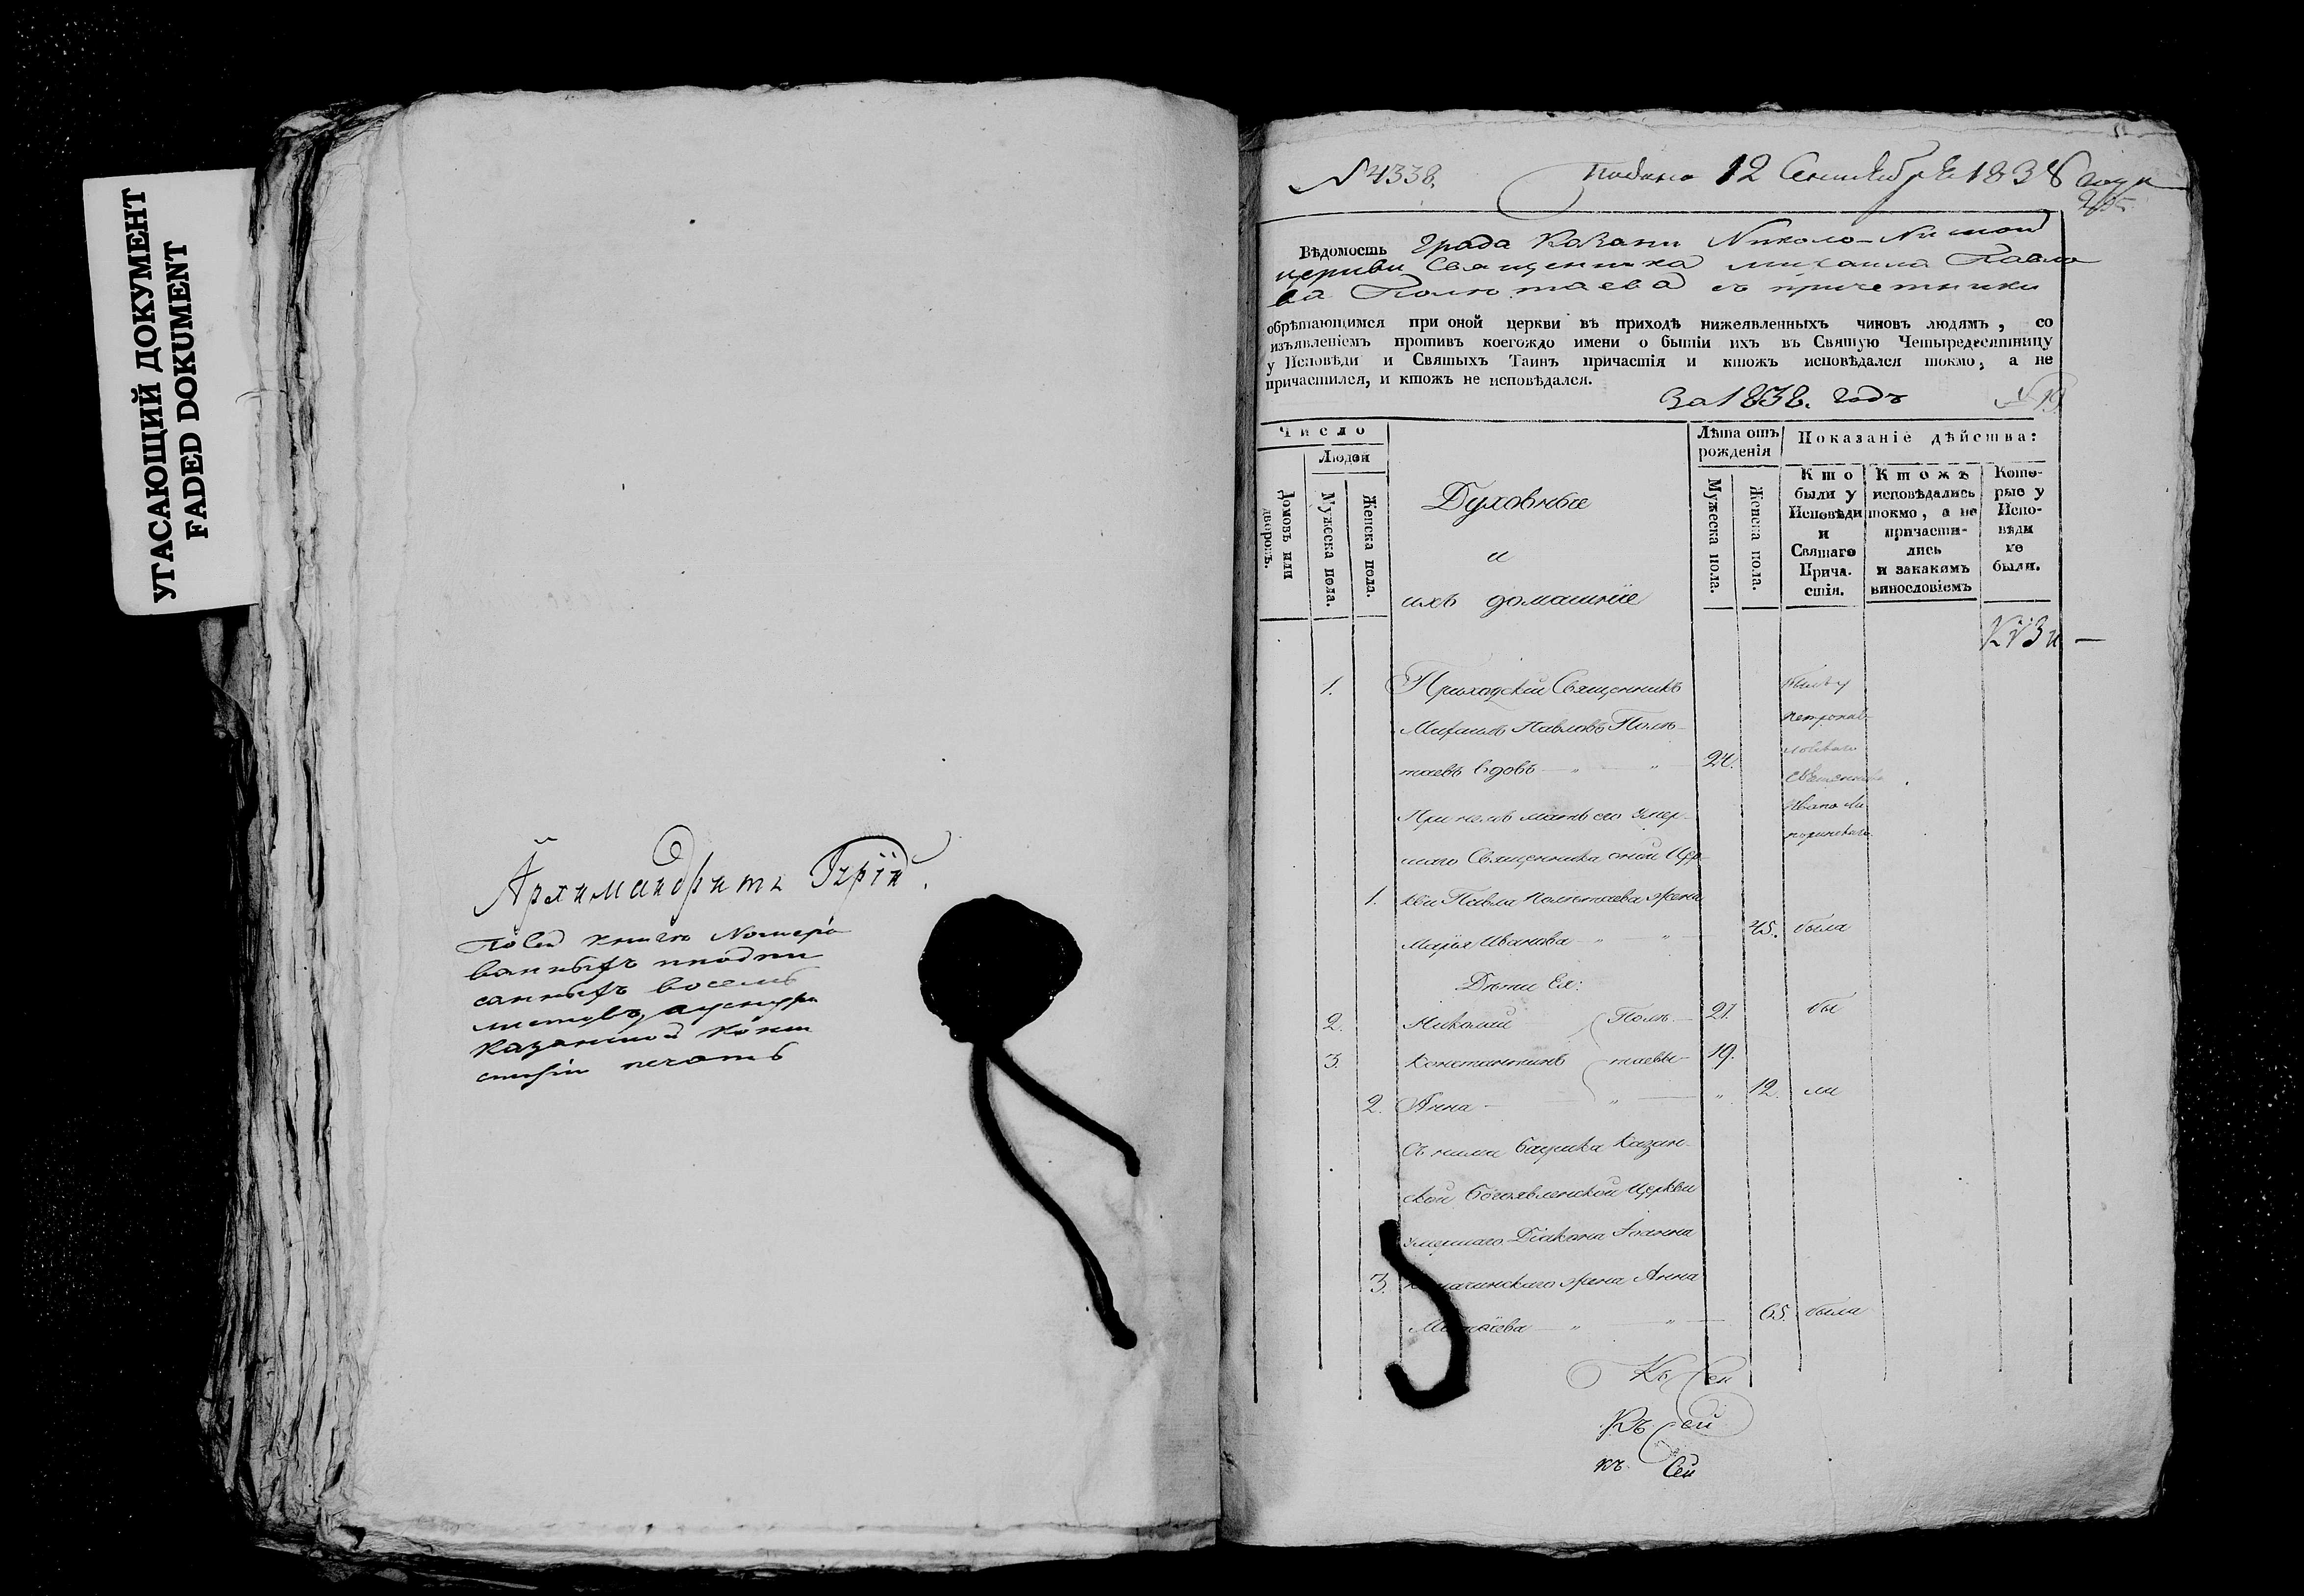 УГАСАЮЩИЙ ДОКУМЕНТ
FADED DOKUMENT
Архимандритъ Гурій.
По сей книгѣ Номеро
ванныхъ
санныхъ восемь
листовъ,
казанской конси
сторіи печать
№ 4338.
Подано 12 Сентября 1838 года
Вѣдомость Града Казани Николо-
церкви Священника Михаила Павло
ва Полетаева съ причетники
обрѣтающимся при оной церкви въ приходѣ нижеявленныхъ чиновъ людямъ, со
изъявленіемъ противъ коегождо имени о бытіи ихъ въ Святую Четыредесятницу
у Исповѣди и Святыхъ Таинъ причастія и ктожъ исповѣдался токмо, а не
причастился, и ктожъ не исповѣдался.
За 1838. годъ
Число
Людей
Домовъ или дворовъ.
Мужеска пола.
Женска пола.
Духовные
и
ихъ домашніе
Лѣта отъ
рожденія
Мужеска пола.
Женска пола.
Показаніе дѣйства:
Кто
были у
Исповѣди
и
Святаго
Прича-
стія.
Ктожъ
исповѣдались
токмо, а не
причасти-
лись
и закакимъ
винословіемъ
Кото-
рые у
Испо-
вѣди
не
были.
1. Приходскій Священникъ
Михаилъ Павловъ Поле-
таевъ вдовъ — „ — „ 24.
При немъ мать его умер-
шаго Священника оной Цер-
1. кви Павла Полетаева жена
Марья Иванова — „ — „ — 45. была
Дѣти Ея:
2. Николай Поле- 21. бы
3. Константинъ таевы 19.
2. Анна — „ — „ 12. ли
Съ ними бабушка Казан-
ской Богоявленской Церкви
умершаго Діакона Іоанна
3. жена Анна
Матвѣева — „ — „ — 65. была
Къ сей
Къ сей
къ сей